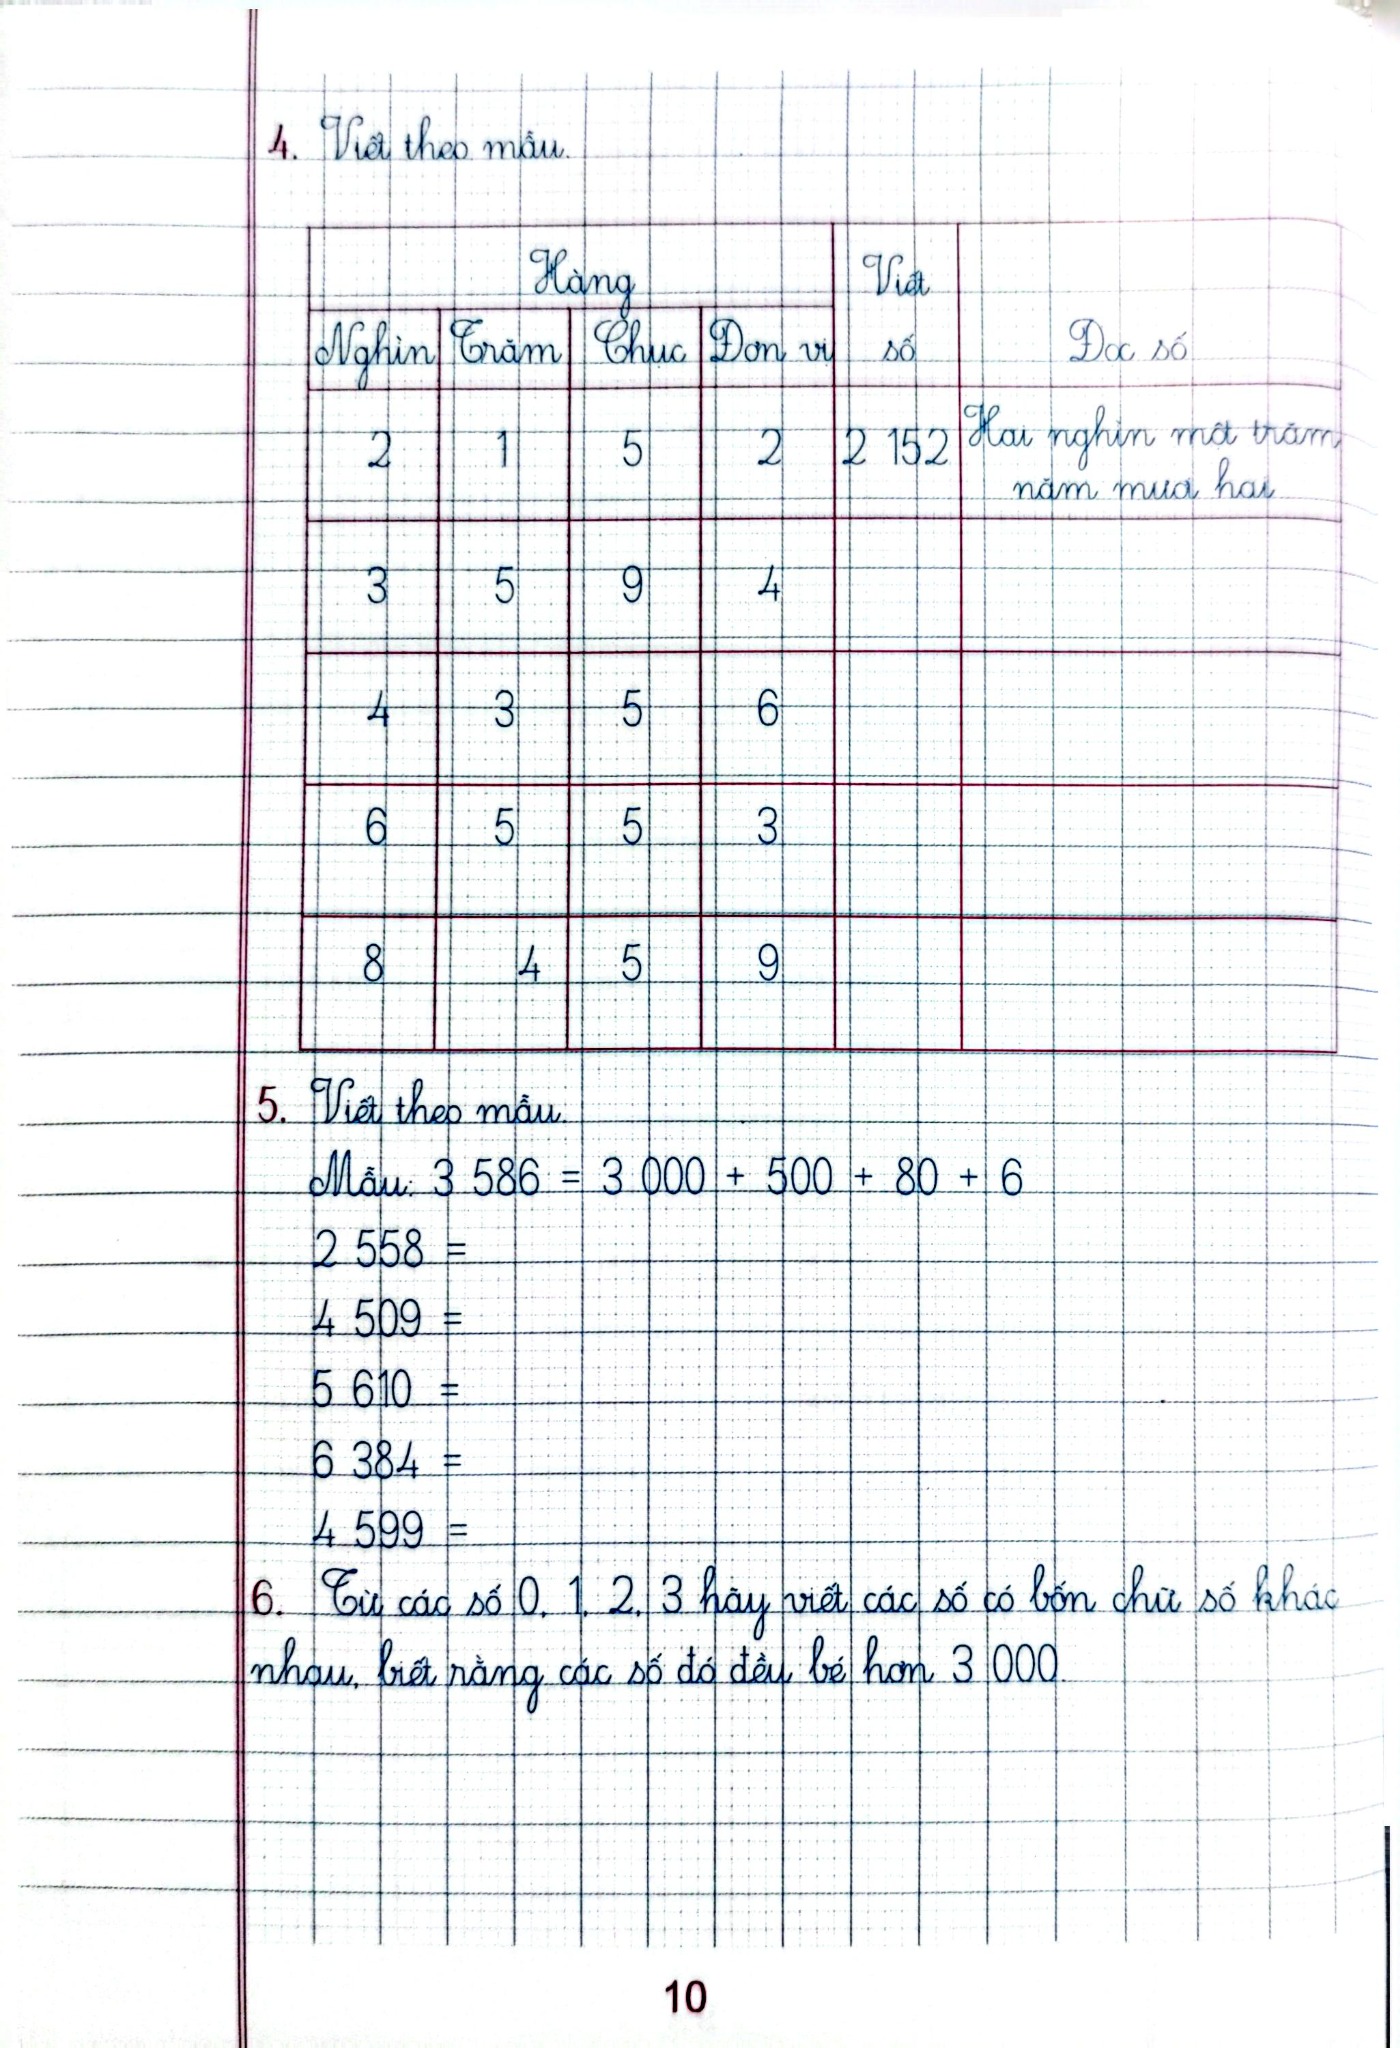 4. Viết theo mẫu.
Hàng Viết
Nghìn Trăm Chục Đơn vị số Đọc số
2 1 5 2 2 152 Hai nghìn một trăm
năm mươi hai
3 5 9 4
4 3 5 6
6 5 5 3
8 4 5 9
5. Viết theo mẫu.
Mẫu: 3 586 = 3 000 + 500 + 80 + 6
2 558 =
4 509 =
5 610 =
6 384 =
4 599 =
6. Từ các số 0, 1, 2, 3 hãy viết các số có bốn chữ số khác
nhau, biết rằng các số đó đều bé hơn 3 000.
10